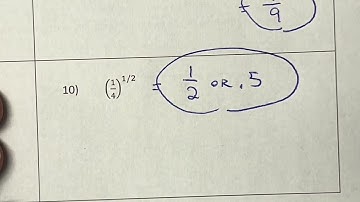 = 1/9
10) (1/4)^1/2 = 1/2 OR .5